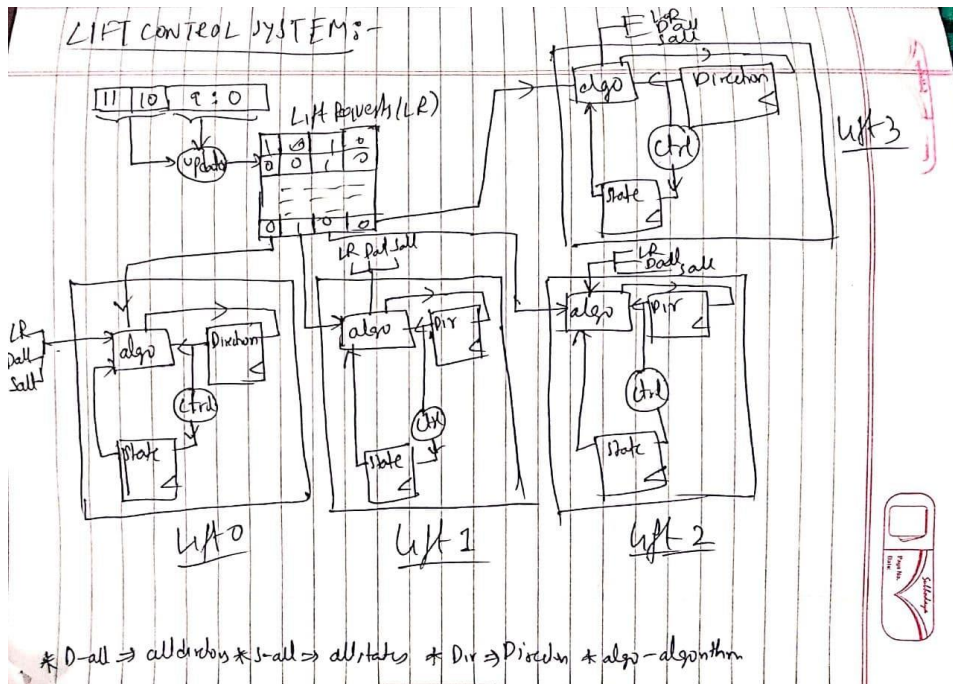 LIFT CONTROL SYSTEM:-
11 10 9:0
Lift Requests (LR)
update
1 0 1 0
0 0 1 0
0 1 0 0
LR
Dall
Sall
algo
Direction
ctrl
state
Lift 3
LR Dall Sall
LR
Dall
Sall
algo
Direction
ctrl
state
Lift 0
algo
Dir
ctrl
state
Lift 1
LR
Dall
Sall
algo
Dir
ctrl
state
Lift 2
Page No.
Date
* D-all ⇒ all directions * S-all ⇒ all states * Dir ⇒ Direction * algo - algorithm